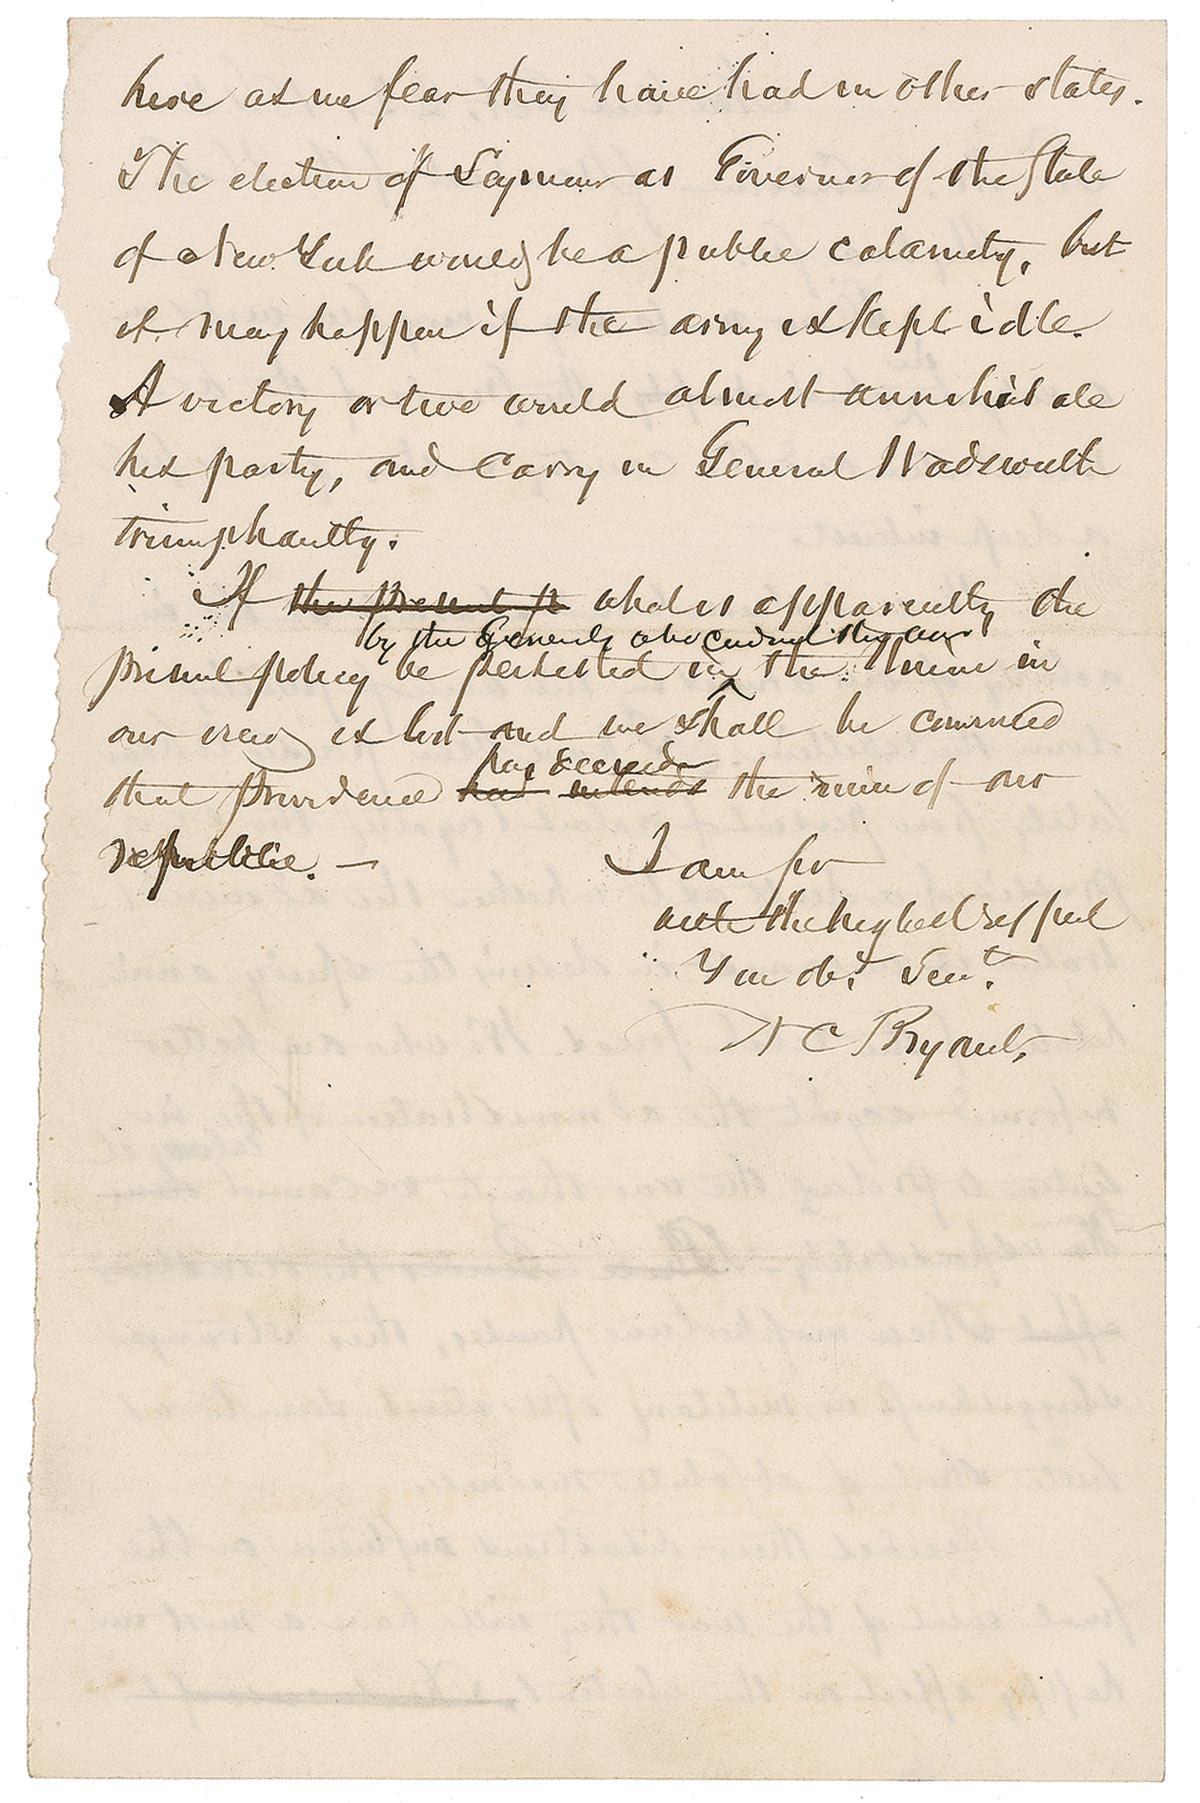 here as we fear they have had in other states.
The election of Seymour as Governor of the State
of New York would be a public calamity, but
it may happen if the army is kept idle.
A victory or two would almost annihilate
his party, and carry in General Wadsworth
triumphantly.
If the present p what is apparently the
by the Generals who conduct the war
present policy be persisted in the Union in
our view is lost and we shall be convinced
has decreed
that Providence has intends the ruin of our
republic. —
I am sir
with the highest respect
Your obt. Servt.
W C Bryant.